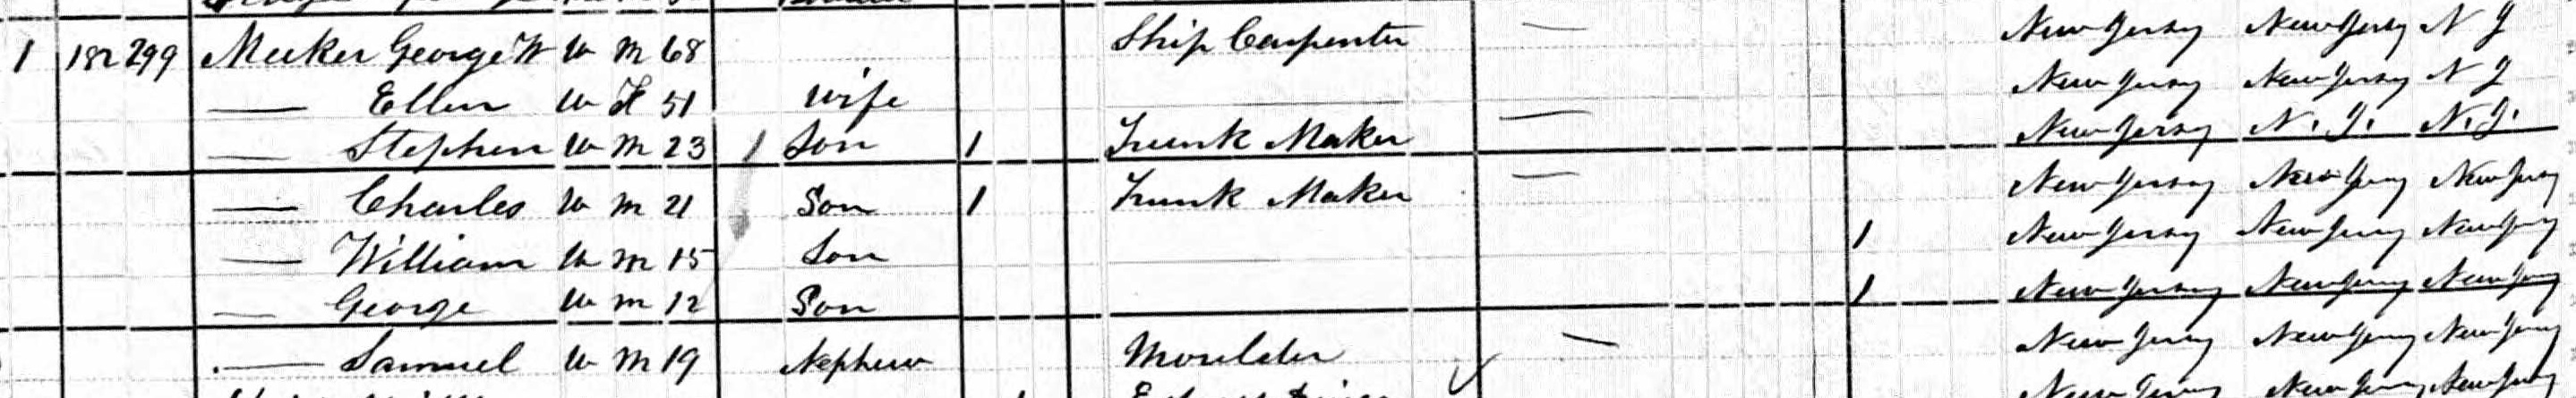 1 182 299 Meeker George W W M 68 Ship Carpenter — New Jersey New Jersey N J
— Ellen W F 51 Wife New Jersey New Jersey N J
— Stephen W M 23 1 Son 1 Trunk Maker — New Jersey N. J. N. J.
— Charles W M 21 Son 1 Trunk Maker — New Jersey New Jersey New Jersey
— William W M 15 Son 1 New Jersey New Jersey New Jersey
— George W M 12 Son 1 New Jersey New Jersey New Jersey
— Samuel W M 19 Nephew Moulder — New Jersey New Jersey New Jersey
New Jersey New Jersey New Jersey